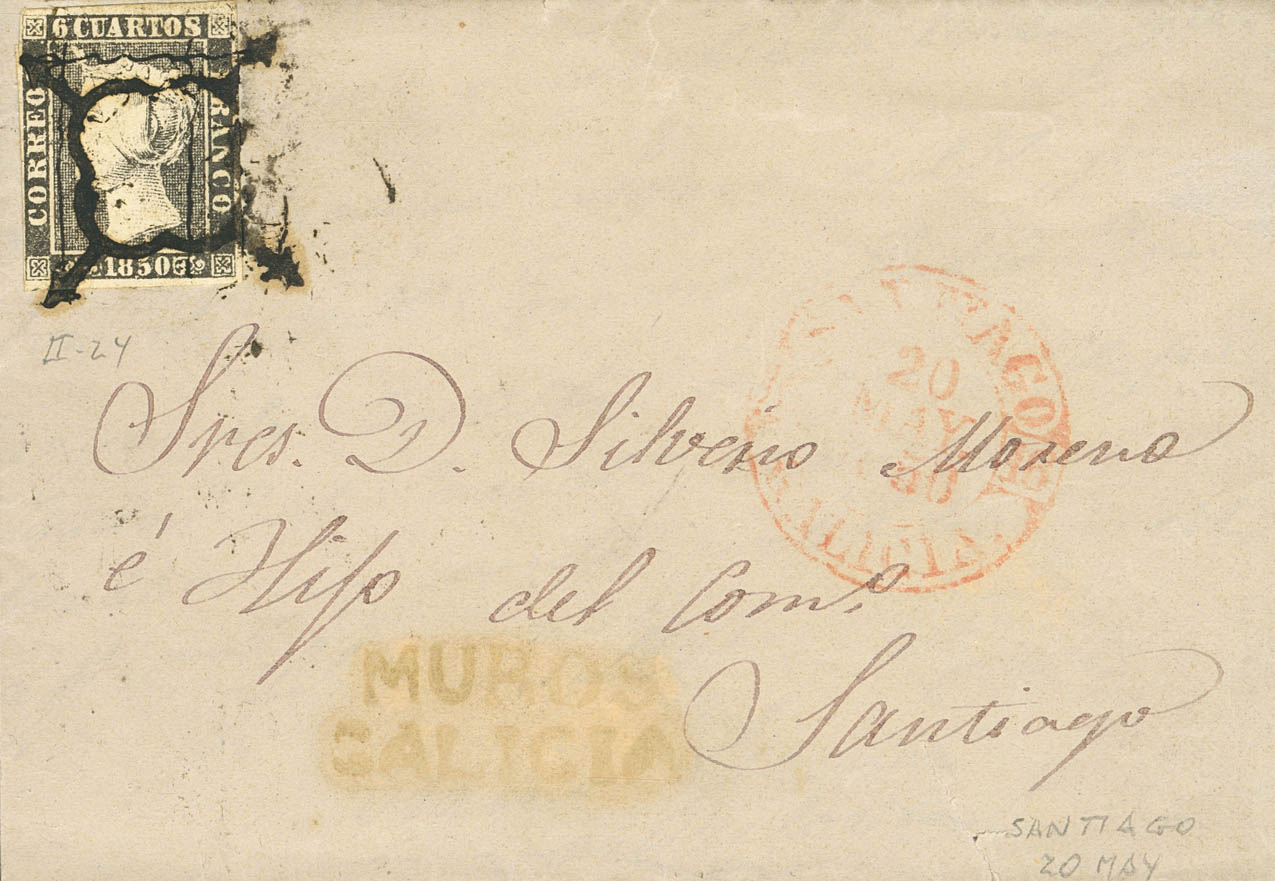 6 CUARTOS
CORREO
FRANCO
1850
II-24
SANTIAGO
20
MAY
1850
GALICIA
Sres. D. Silverio Moreno
é Hijo del Com.º
Santiago
MUROS
GALICIA
SANTIAGO
20 MAY